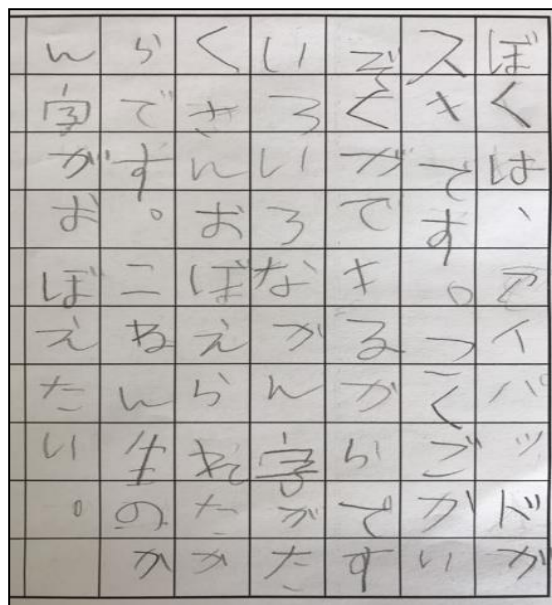 ぼくは、アイパッドが
スキです。こくごがい
ぞくがでキるからです
いろいろなかん字がた
くさんおぼえられたか
らです。二ねん生のか
ん字がおぼえたい。